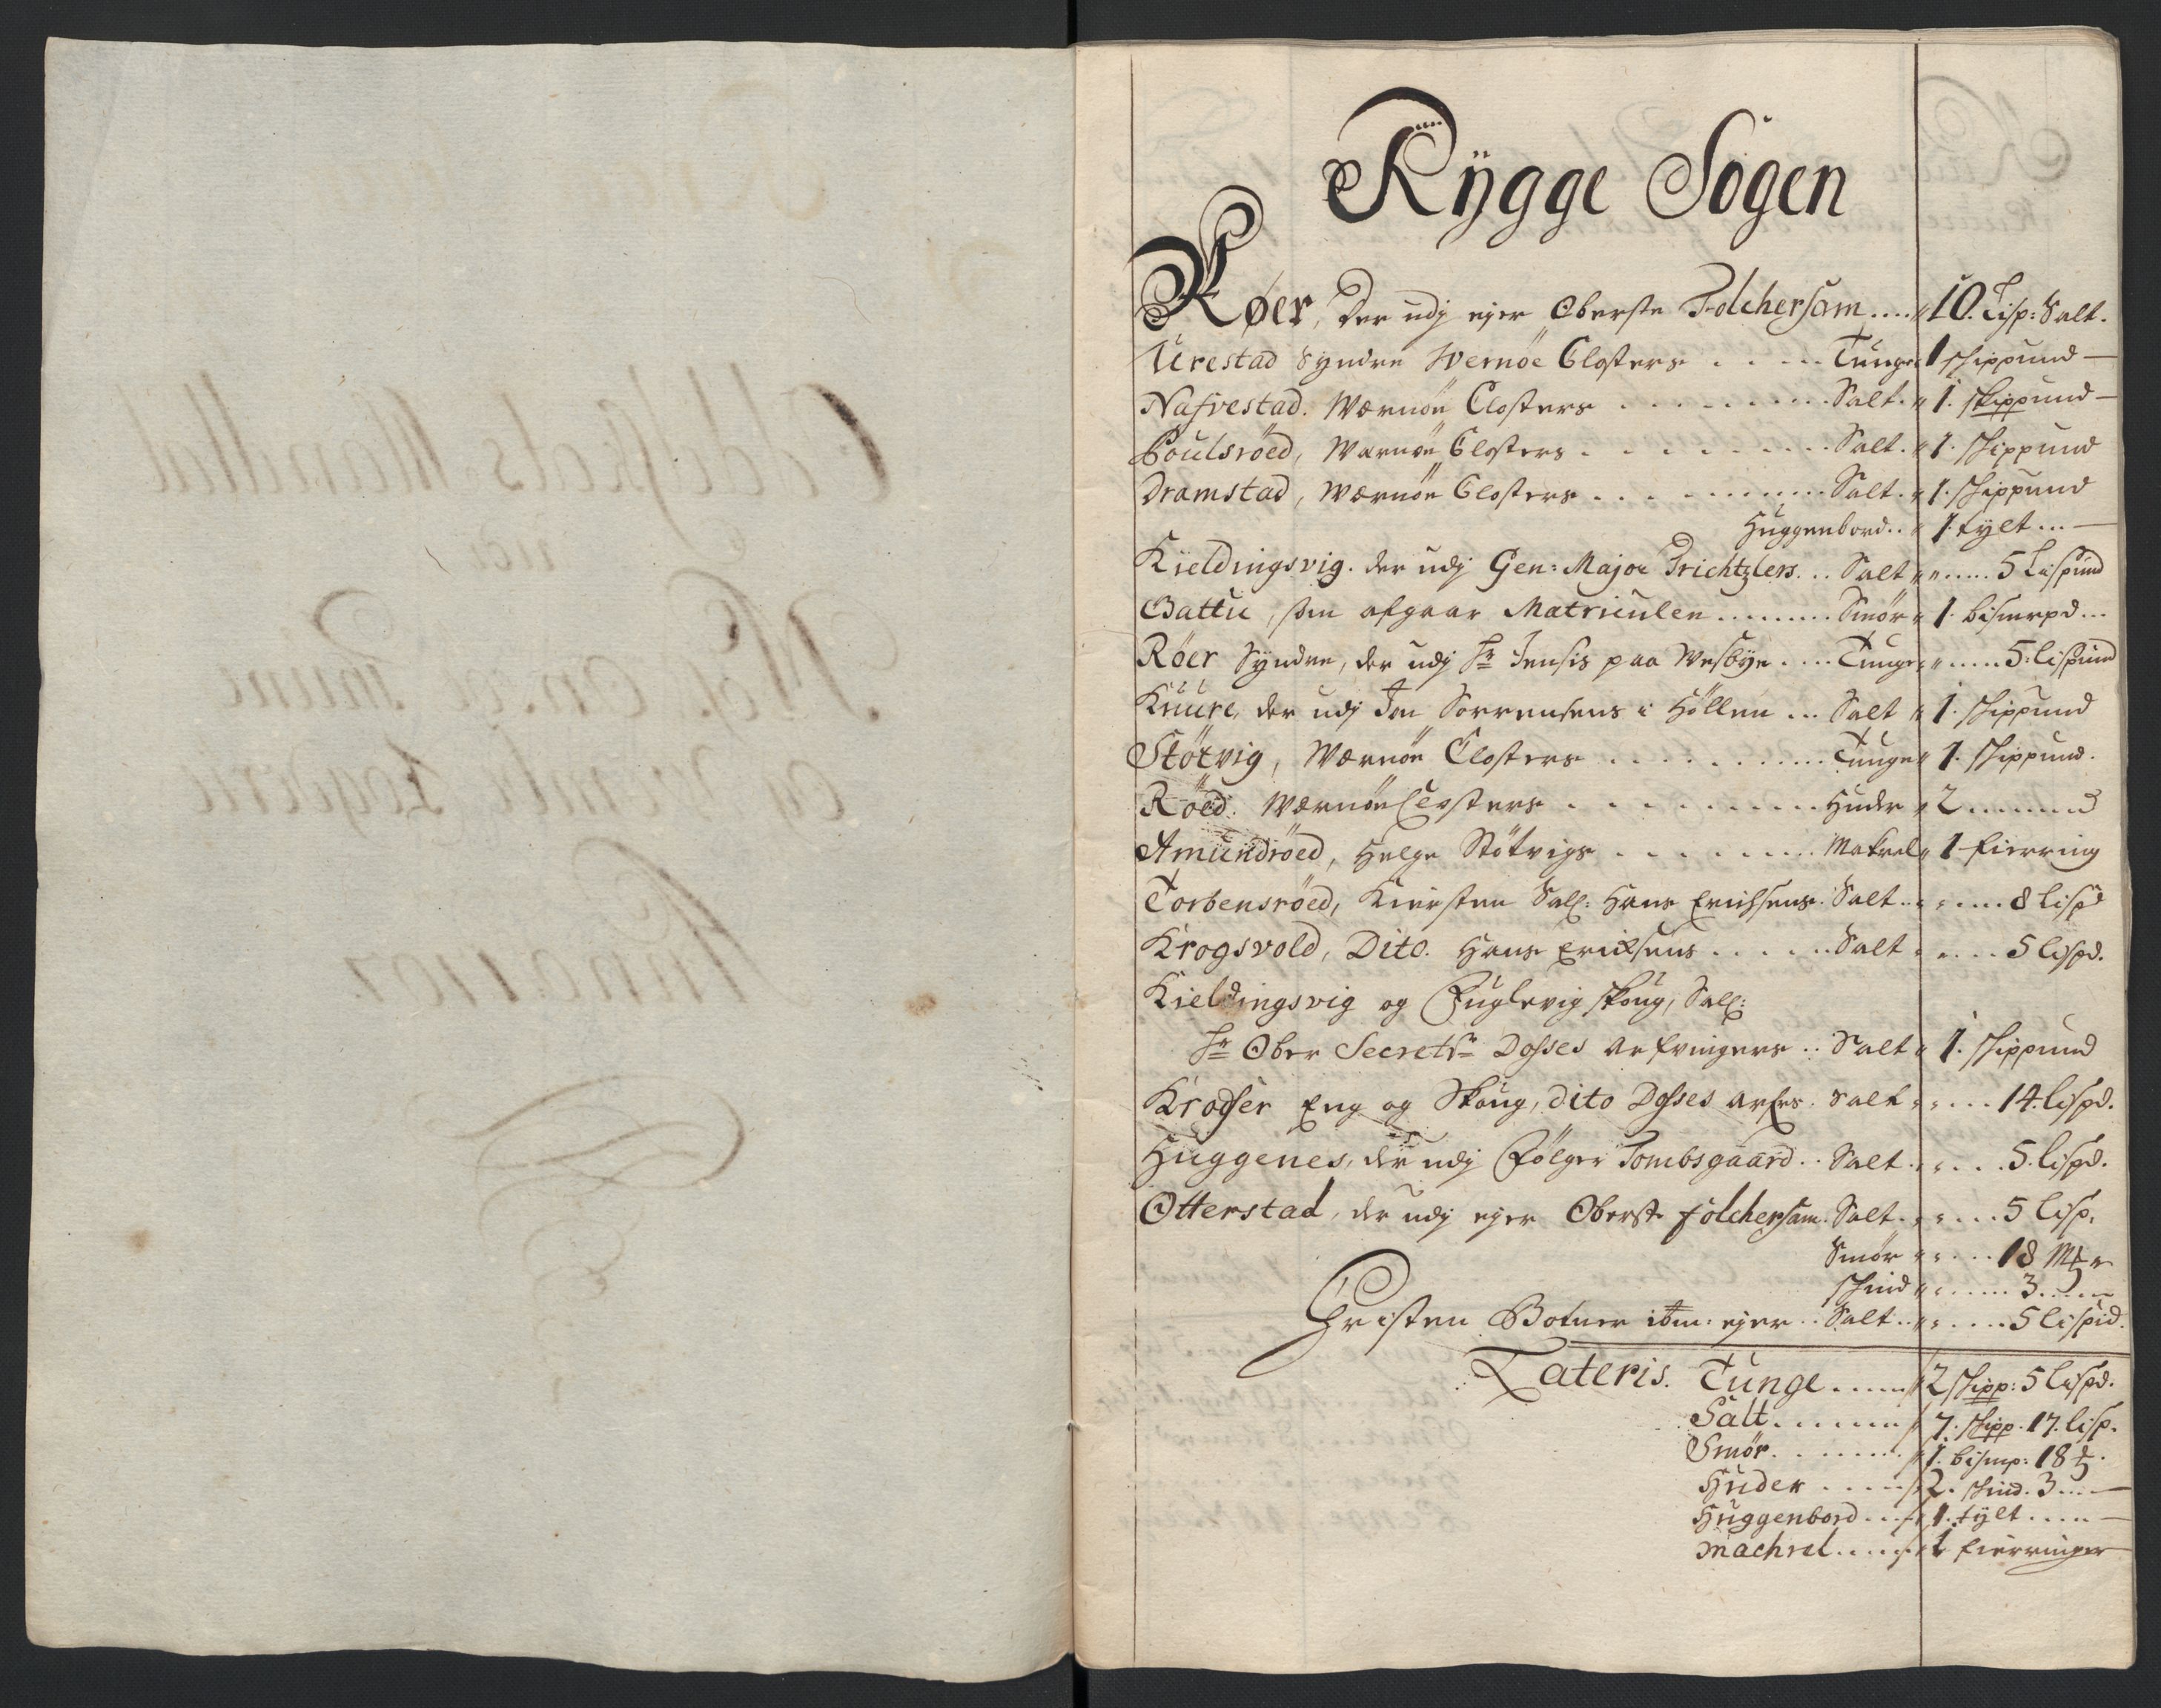 Rÿgge Sogen
Røer, der udj ejer Oberste Folchersam .... " 10. Lisp: Salt.
Urestad Syndre Wernöe Closters . . . . . Tunge 1 schippund
Nafvestad. Wærnöe Closters . . . . . . . . . Salt. " 1. skippund
Poulsröed, Wærnöe Closters . . . . . . . . . Salt. " 1. schippund
Dramstad, Wærnöe Closters . . . . . . . . . Salt. " 1. schippund
Huggenbord .. " 1. tylt ...
Kieldingsvig. der udj Gen: Major Trichtzlers. .. Salt " " ..... 5 Lispund
Battu, som afgaar Matriculen ......... Smör " 1. bismerpd...
Röer Syndre, der udj Hr Jensis paa Wesbye .... Tunge " " ..... 5. lispund
Knure, der udj Jon Sörrensens i Höllen ... Salt " 1. schippund
Stötvig, Wærnöe Closters . . . . . . . . . Tunge " 1. schippund.
Röed. Wærnöe Closters . . . . . . . . . Huder " 2 .......
Amundröed, Helge Stötvigs . . . . . . . . Makrel " 1 fierring
Torbensröed, Kiersten Sall: Hans Erichsens. Salt .. " " .... 8 lispd
Krogsvold, Dito. Hans Erichsens . . . . . . Salt " " ... 5 lispd.
Kieldingsvig og Fuglevig skoug, Sall:
Hr Ober Secretr Dosses Arfvingers .. Salt " 1. schippund
Krodser Eng og Skoug, dito Dosses Arfvs. Salt " " ... 14. lispd.
Huggenes, der udj Fölger Tombsgaard .. Salt. " " ... 5. lispd.
Otterstad, der udj ejer Oberste folchersam. Salt. " " ... 5 lisp.
Smör " " ... 18 Mkr
schind " " ..... 3 .....
Christen Botner item: ejer .. Salt .. " " .... 5 lispd.
Lateris. Tunge ..... 2 schipp: 5 lispd.
Salt ....... 7. schipp. 17. lisp.
Smör ........ 1. bismp: 18 ℔.
Huder ..... 2. schind. 3 ....
Huggenbord .... 1. tÿlt .....
Machrel ..... 1 fierringer